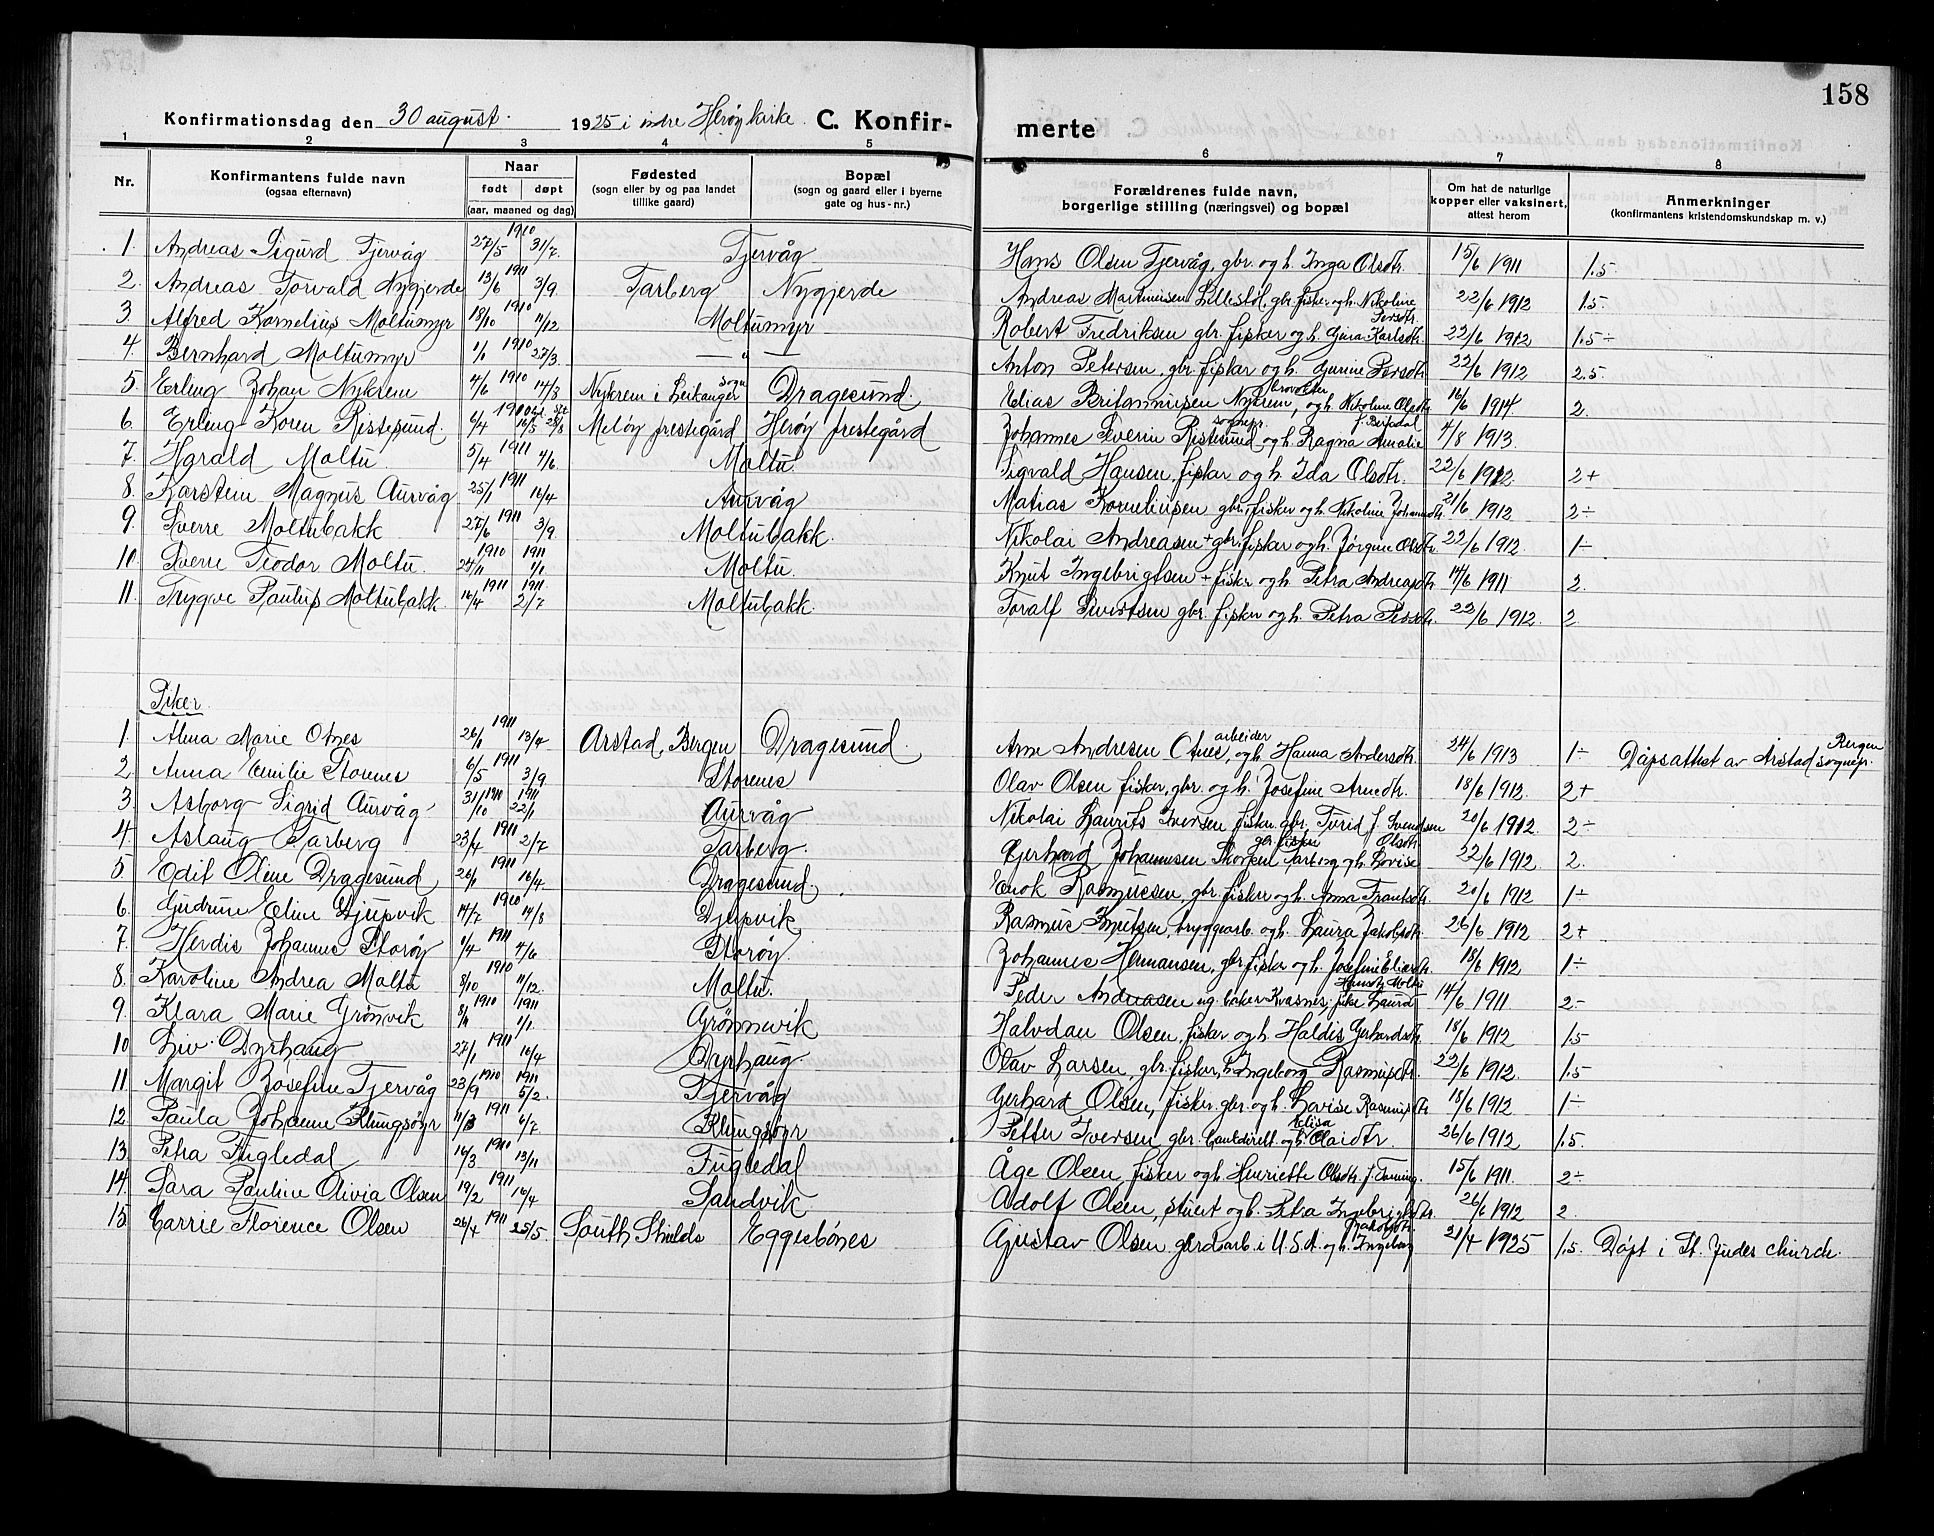 158
Konfirmationsdag den 30 august. 1925 i indre Herøy kirke. C. Konfirmerte
1 2 3 4 5 6 7 8
Nr. Konfirmantens fulde navn (ogsaa efternavn) Naar født døpt (aar, maaned og dag) Fødested (sogn eller by og paa landet tillike gaard) Bopæl (sogn og gaard eller i byerne gate og hus-nr.) Forældrenes fulde navn, borgerlige stilling (næringsvei) og bopæl Om hat de naturlige kopper eller vaksinert, attest herom Anmerkninger (konfirmantens kristendomskundskap m. v.)
1. Andreas Sigurd Tjervåg 27/5 1910 31/7. Tjervåg Hans Olsen Tjervåg, gbr. og h. Inga Olsdtr. 15/6 1911 1.5
2. Andreas Torvald Nygjerde 13/6 1911 3/9. Tarberg Nygjerde Andreas Martinusen Lillestøl, gbr. fisker og h. Nikoline Persdtr. 22/6 1912 1.5
3 Alfred Kornelius Moltumyr 18/10 1910 11/12. Moltumyr Robert Fredriksen gbr. fisker og h. Gina Karlsdtr. 22/6 1912 1.5 ÷
4. Bernhard Moltumyr 1/1 1910 27/3. — " — Anton Petersen, gbr. fisker og h. Gurine Persdtr 22/6 1912 2.5
5. Erling Johan Nykrem 4/6 1910 14/8 Nykrem i Leikanger sogn Dragesund. Elias Britanniusen Nykrem, og h. Nikoline Olsdtr 16/6 1914. 2.
6. Erling Koren Ristesund. 6/4 1910 16/5 28/8 Meløy prestegård Herøy prestegård Johannes Severin Ristesund sognepr. og h. Ragna Amalie 4/8 1913.
7. Harald Moltu. 5/4 1911 4/6. Moltu. Sigvald Hansen, fisker og h. Ida Olsdtr. 22/6 1912. 2+
8. Karstein Magnus Aurvåg 25/1 1911 16/4. Aurvåg Matias Korneliusen gbr., fisker og h. Nikoline Johansdtr. 21/6 1912 2÷
9. Sverre Moltubakk 27/6 1911 3/9. Moltubakk. Nikolai Andreasen + gbr. fisker og h. Jørgine Olsdtr. 22/6 1912. 1÷
10. Sverre Teodor Moltu. 24/11 1910 1/1 1911 Moltu. Knut Ingebrigtsen + fisker og h. Petra Andreasdtr. 14/6 1911 2.
11. Trygve Paulus Moltubakk. 16/4 1911 2/7 1911. Moltubakk. Toralf Sivertsen gbr. fisker og h. Petra Persdtr. 22/6 1912. 2
Piker.
1. Alma Marie Otnes 26/1 1911 13/4 Arstad, Bergen Dragesund. Arne Andresen Otnes, arbeider og h. Hanna Andersdtr. 24/6 1913 1÷ Dåpsattest av Årstad sognepr. Bergen
2. Anna Emilie Stornes 6/5 1911 3/9 Stornes Olav Olsen fisker, gbr. og h. Josefine Arnedtr. 18/6 1912. 2+
3. Asborg Sigrid Aurvåg 31/10 1910 22/1 1911 Aurvåg Nikolai Laurits Iversen fisker gbr. Turid f. Svendsen 20/6 1912. 2÷
4. Aslaug Tarberg 23/4 1911 2/7 Tarberg. Gerhard Johannesen gbr. fisker Tarberg og h. Lovise Olsdtr. 22/6 1912. 2.
5 Edit Oline Dragesund 26/1 1911 16/4. Dragesund. Enok Rasmussen, gbr. fisker og h. Anna Frantsdtr. 20/6 1912 1÷
6. Gudrun Eline Djupvik 14/7 1910 14/8 Djupvik Rasmus Knutsen, bryggearb. og h. Laura Jakobsdtr. 26/6 1912 2+
7. Herdis Johanne Storøy 1/4 1911 4/6 Storøy. Johannes Hermansen, gbr. fisker og h. Josefine Eliasdtr. 18/6 1912 1÷
8. Karoline Andrea Moltu 8/10 1910 11/12. Moltu. Peder Andreasen ug. bøker Kvasnes, pike Laura Hansdtr. Moltu 14/6 1911 2-
9. Klara Marie Grønvik 8/11 1910 1/1. 1911 Grønnevik Halvdan Olsen, fisker og h. Haldis Gerhardsdtr. 18/6 1912 1.5
10 Liv Dyrhaug 27/1 1911 16/4 Dyrhaug. Olav Larsen, gbr. fisker, h. Ingeborg Rasmusdtr. 22/6 1912. 1.5
11. Margit Josefine Tjervåg 23/9 1910 5/2. 1911 Tjervåg Gerhard Olsen, fisker. gbr. og h. Lovise Rasmusdtr. 18/6 1912 1÷
12. Paula Johanne Klungsøyr 11/3 1911 6/7 Klungsøyr Petter Iversen gbr. bankdirekt. og h. Elisa Olaidtr 26/6 1912 1.5.
13. Petra Fugledal 16/3 1910 13/11 Fugledal Åge Olsen, fisker og h. Henriette Olsdtr. f. Tonning. 15/6 1911. 2÷
14. Sara Pauline Olivia Olsen 19/2 1911 16/4 Sandvik Adolf Olsen, stuert og h. Petra Ingebrigtsdtr. 26/6 1912 2.
15 Carrie Florence Olsen 26/4 1911 25/5. South Shields Eggesbønes Gjustav Olsen gårdarb. i U.S.A. og h. Ingeborg Jakobsdtr. 21/4 1925 1.5 Døpt i St. Judes church.